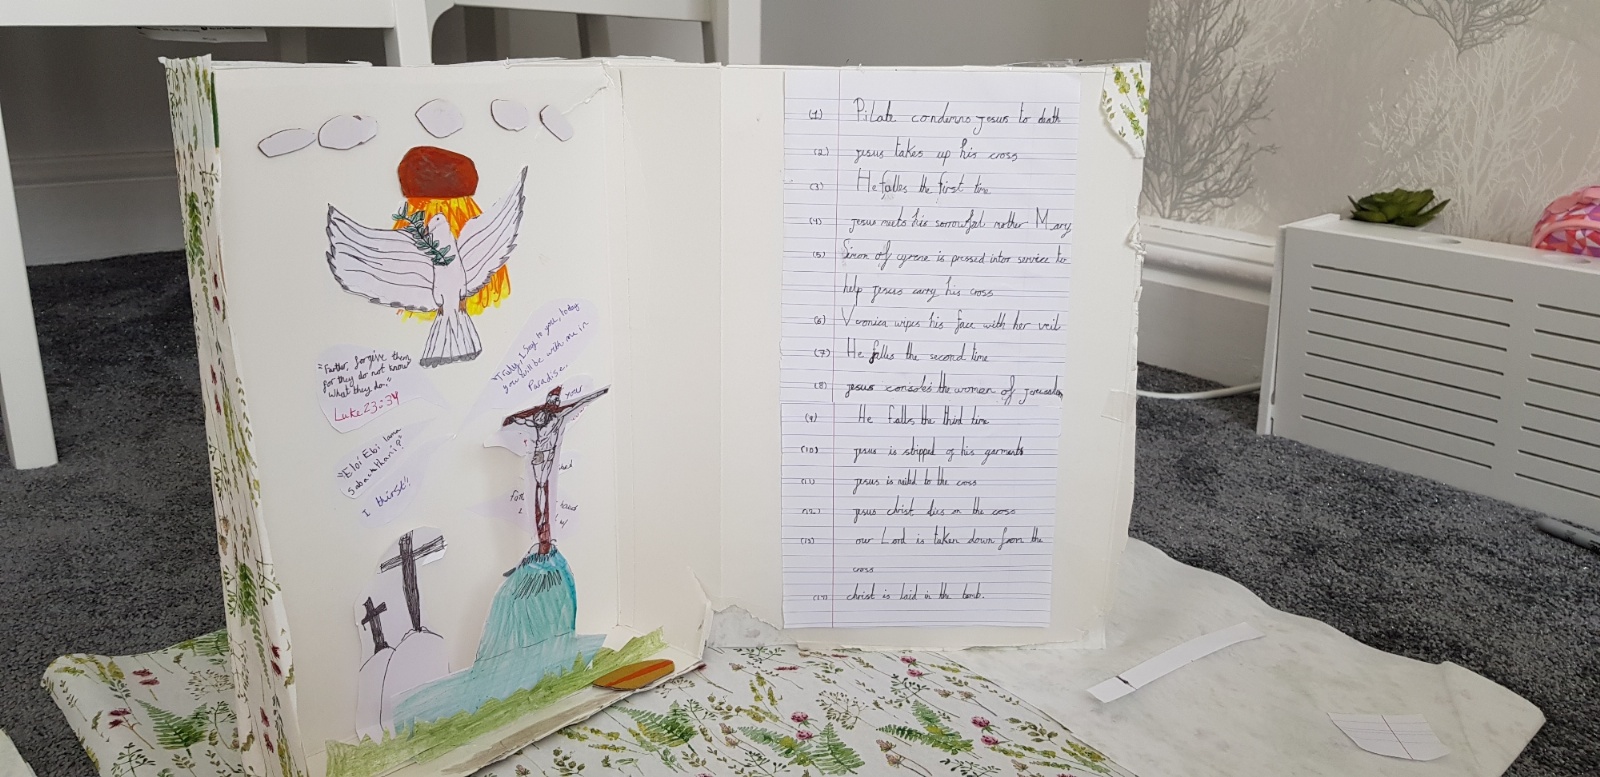 "Farther, forgive them
for they do not know
what they do."
Luke 23:34
"Truly, I say to you, today
you will be with me in
Paradise.
"Eloi Eloi lama
sabachthani?"
I thirst!
your
for
(1) Pilate condemns jesus to death
(2) jesus takes up his cross
(3) He falles the first time
(4) jesus meets his sorrowful mother Mary
(5) Simon of cyrene is pressed intor service to
help jesus carry his cross
(6) Veronica wipes his face with her veil
(7) He falles the second time
(8) jesus consoles the women of jerusalem
(9) He falls the third time
(10) jesus is stripped of his garments
(11) jesus is nailed to the cross
(12) jesus christ dies on the cross
(13) our Lord is taken down from the
cross
(14) christ is laid in the tomb.